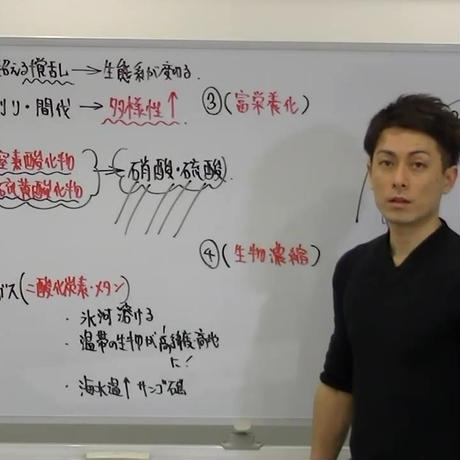 超える撹乱 → 生態系が変わる.
り・間伐 → 多様性↑
窒素酸化物
硫黄酸化物
硝酸・硫酸.
ガス(二酸化炭素・メタン)
・氷河溶ける
・温帯の生物が高緯度高地に!
・海水温↑ サンゴ礁
③(富栄養化)
④(生物濃縮)